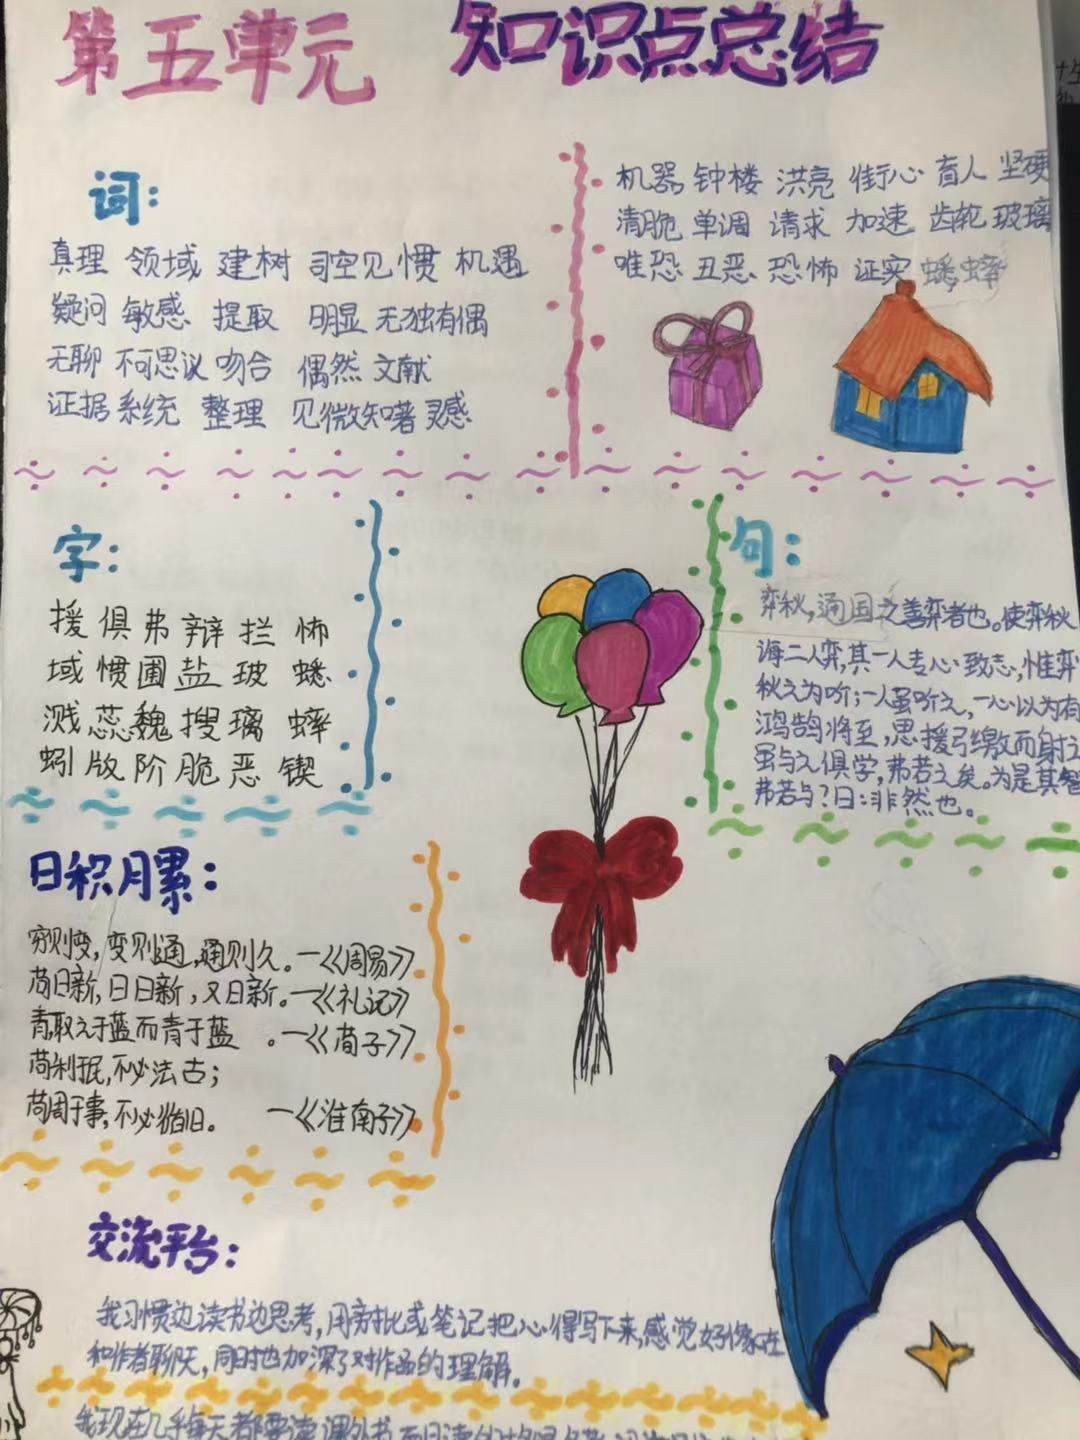 第五单元 知识点总结
词:
真理 领域 建树 司空见惯 机遇
疑问 敏感 提取 明显 无独有偶
无聊 不可思议 吻合 偶然 文献
证据 系统 整理 见微知著 灵感
机器 钟楼 洪亮 街心 盲人 坚硬
清脆 单调 请求 加速 齿轮 玻璃
唯恐 丑恶 恐怖 证实 蟋蟀
字:
援 俱 弗 辩 拦 怖
域 惯 圃 盐 玻 蟋
溅 蕊 魏 搜 璃 蟀
蚓 版 阶 脆 恶 锲
句:
弈秋,通国之善弈者也。使弈秋
诲二人弈,其一人专心致志,惟弈
秋之为听;一人虽听之,一心以为有
鸿鹄将至,思援弓缴而射之
虽与之俱学,弗若之矣。为是其智
弗若与?曰:非然也。
日积月累:
穷则变,变则通,通则久。—《周易》
苟日新,日日新,又日新。—《礼记》
青,取之于蓝而青于蓝。—《荀子》
苟利于民,不必法古;
苟周于事,不必循旧。—《淮南子》
交流平台:
我习惯边读书边思考,用旁批或笔记把心得写下来,感觉好像在
和作者聊天,同时也加深了对作品的理解。
我现在几乎每天都要读课外书